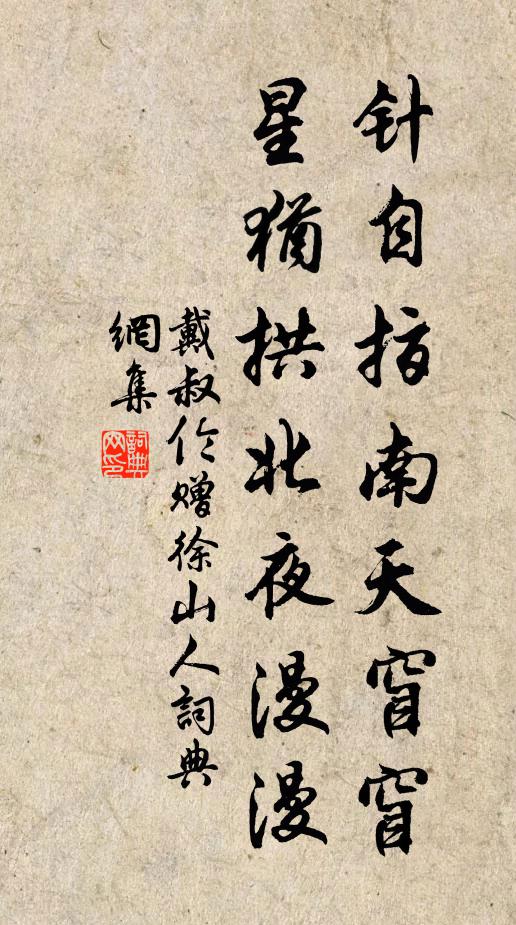 针自指南天窅窅
星猶拱北夜漫漫
戴叔伦贈徐山人詞典
網集
詞典
网印